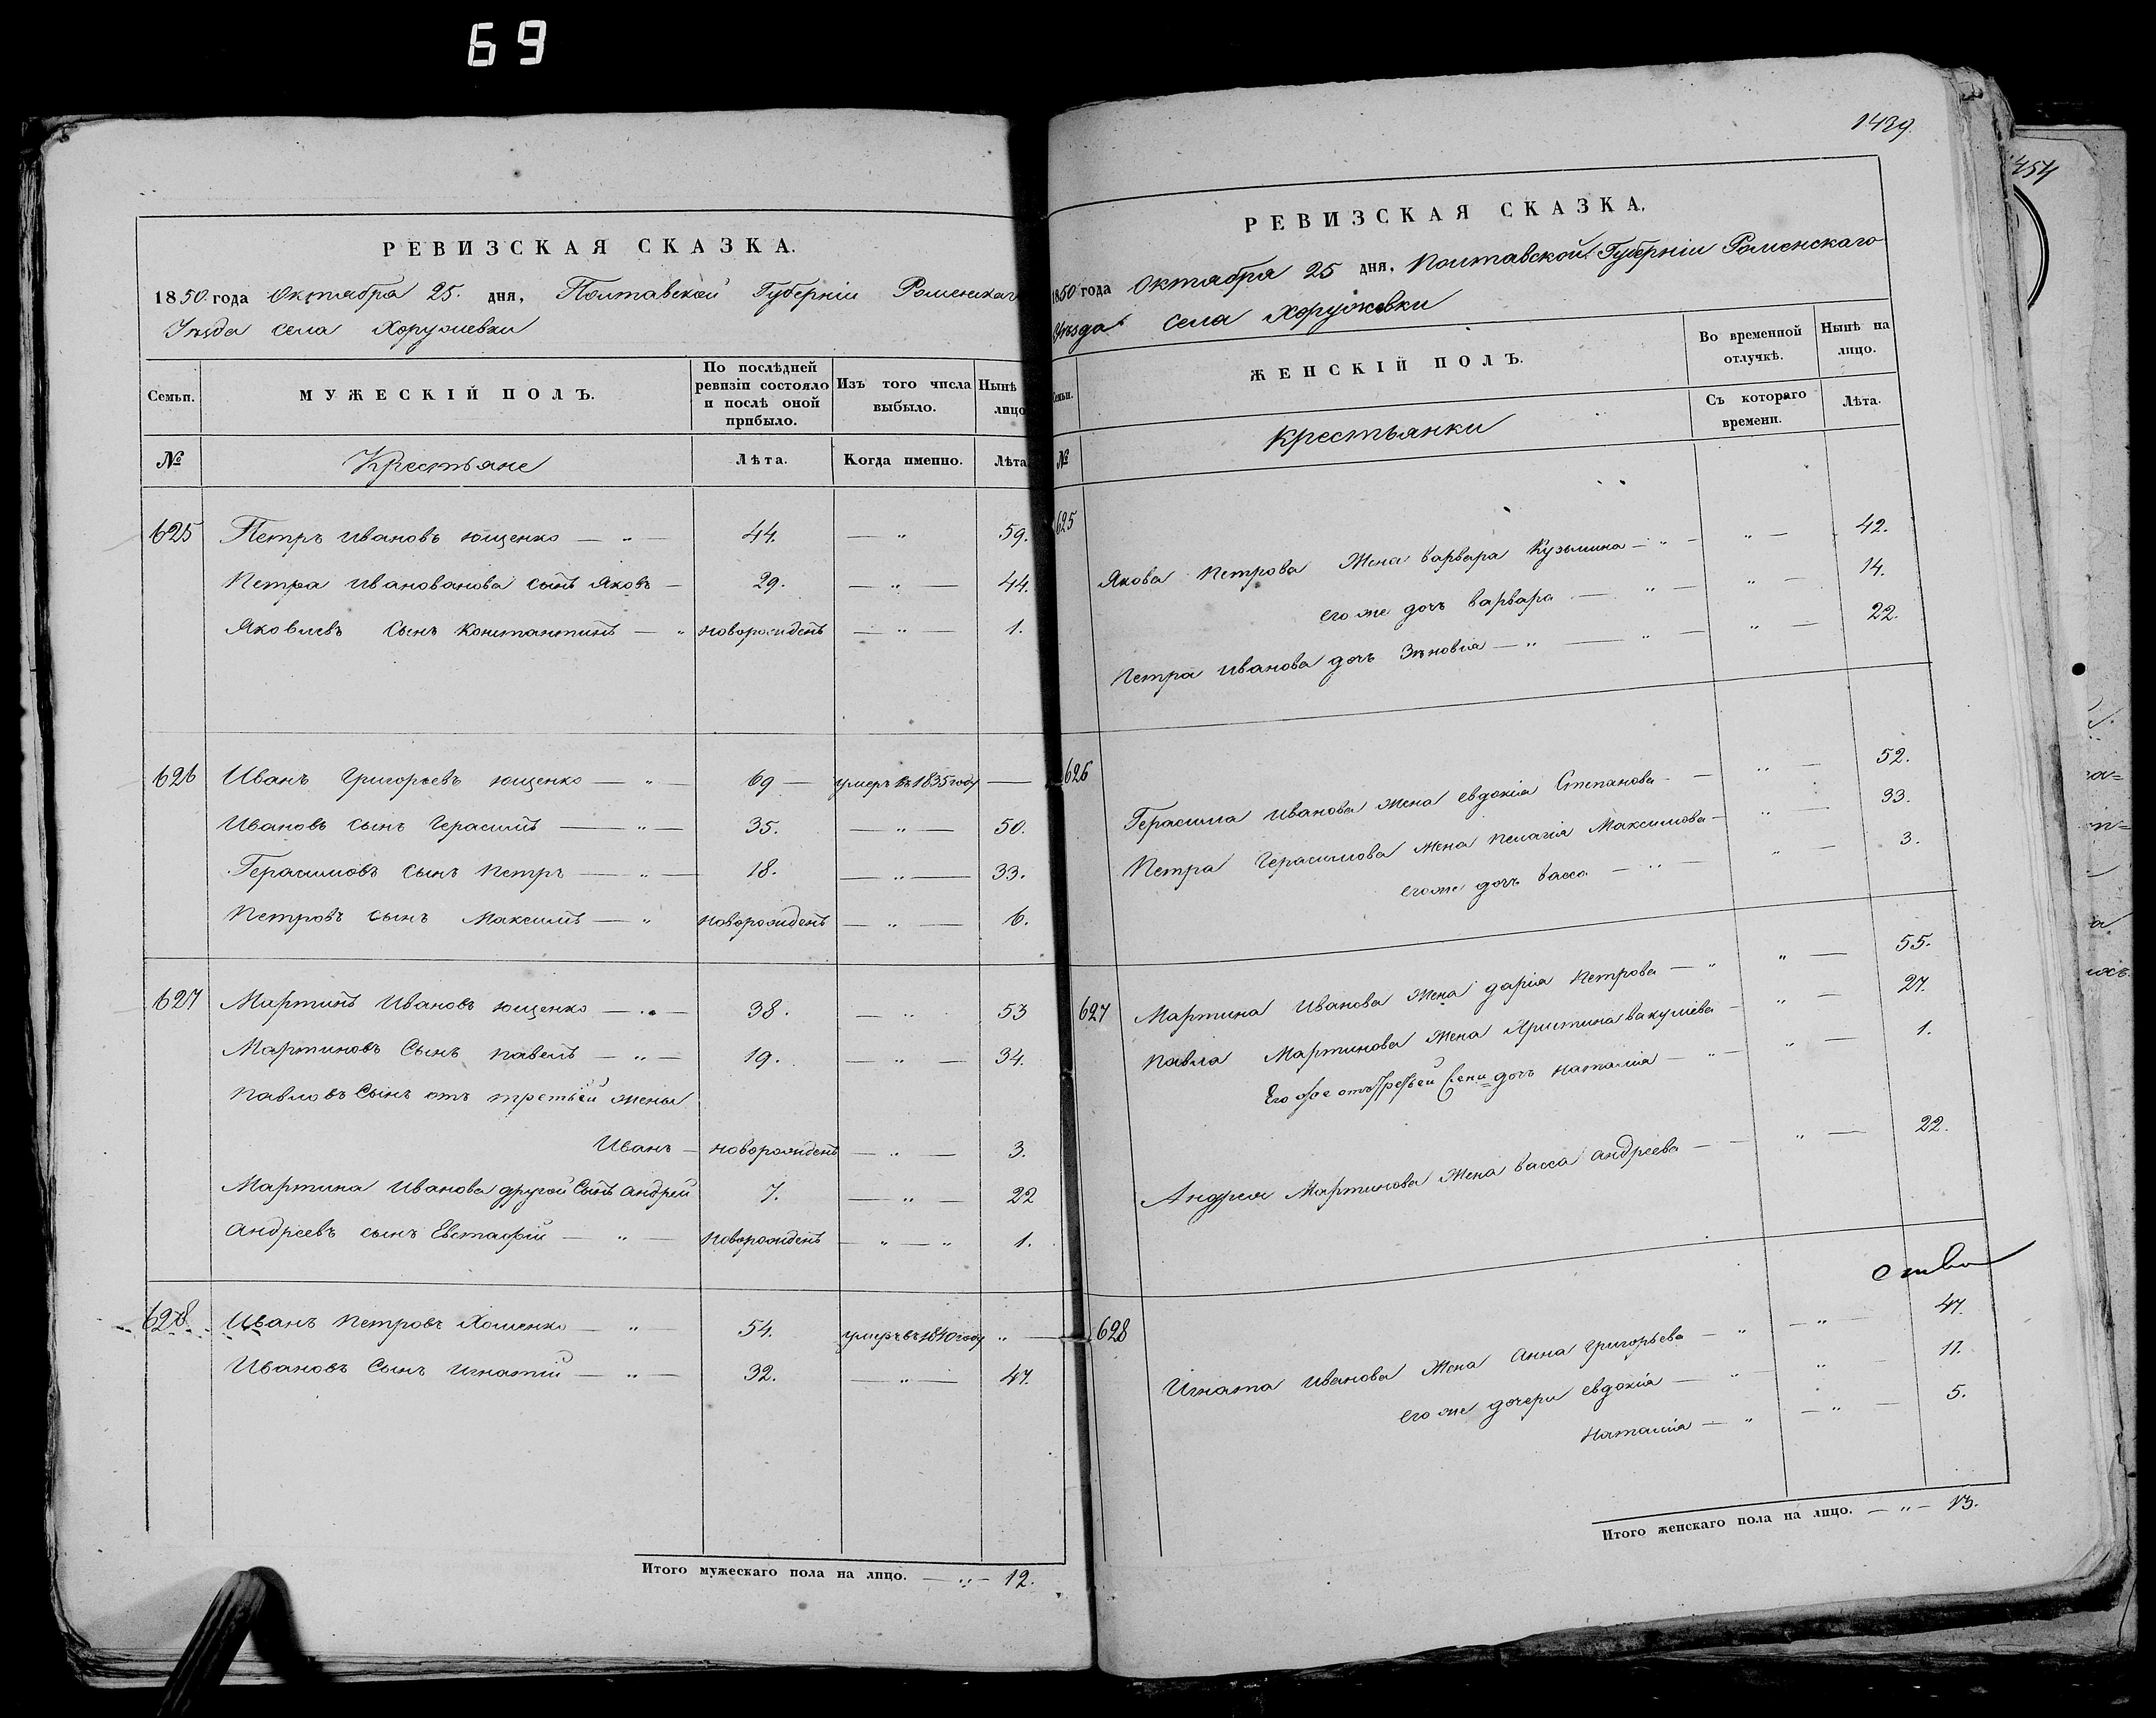 69
РЕВИЗСКАЯ СКАЗКА.
1850 года Октября 25. дня, Полтавской Губерніи Роменскаг
Уѣзда села Хоружевки
Семьи.
МУЖЕСКІЙ ПОЛЪ.
По послѣдней ревизіи состояло и послѣ оной прибыло.
Изъ того числа выбыло.
Нынѣ лицо
№
Крестьяне
Лѣта.
Когда именно.
Лѣта
625 Петръ Ивановъ Ющенко — „ — 44. — „ 59.
Петра Иванованова сынъ Яковъ — 29. — „ — 44.
Яковлевъ Сынъ Константинъ — „ новорожденъ — „ — 1.
626 Иванъ Григорьевъ Ющенко — „ — 69 — умеръ въ 1835 году —
Ивановъ сынъ Герасимъ — „ — 35. — „ — 50.
Герасимовъ сынъ Петръ — „ — 18. — „ — 33.
Петровъ сынъ Максимъ — „ новорожденъ — „ — 6.
627 Мартинъ Ивановъ Ющенко — „ — 38. — „ 53
Мартиновъ Сынъ Павелъ — „ — 19. — „ — 34.
Павловъ Сынъ отъ третьей жены
Иванъ — новорожденъ — „ — 3.
Мартина Иванова другой Сынъ Андрей 7. — „ — 22
Андреевъ сынъ Евстафій — „ — новорожденъ — „ — „ 1.
628 Иванъ Петровъ Хоменко — „ 54. умеръ въ 1840 году „ —
Ивановъ Сынъ Игнатій — „ — 32. — „ — 47.
Итого мужескаго пола на лицо. — „ — 12.
1439.
РЕВИЗСКАЯ СКАЗКА.
1850 года Октября 25 дня, Полтавской Губерніи Роменскаго
Уѣзда села Хоружевки
Семьи.
ЖЕНСКІЙ ПОЛЪ.
Во временной отлучкѣ.
Нынѣ на лицо.
Съ котораго времени.
Лѣта.
№
Крестьянки
625
Якова Петрова Жена Варвара Кузьмина — „ — „ — 42.
его же дочь Варвара — „ — „ — 14.
Петра Иванова дочь Зѣновія — „ — „ — „ — 22.
626
Герасима Иванова жена Евдокія Степанова — „ — 52.
Петра Герасимова жена Пелагія Максимова — „ — 33.
его же дочь Васса — „ — „ — 3.
627 Мартина Иванова жена Дарія Петрова — „ „ — 55.
Павла Мартинова жена Христина Вакулѣва — „ — 27.
Его же отъ третьей жены дочь Наталія — „ — „ — 1.
Андрея Мартинова жена Васса Андреева — — „ — 22.
628
Игната Иванова Жена Анна Григорьева — „ — „ — 47.
его же дочери Евдокія — „ „ 11.
Наталія — „ — „ 5.
Итого женскаго пола на лицо. — „ — 13.
454